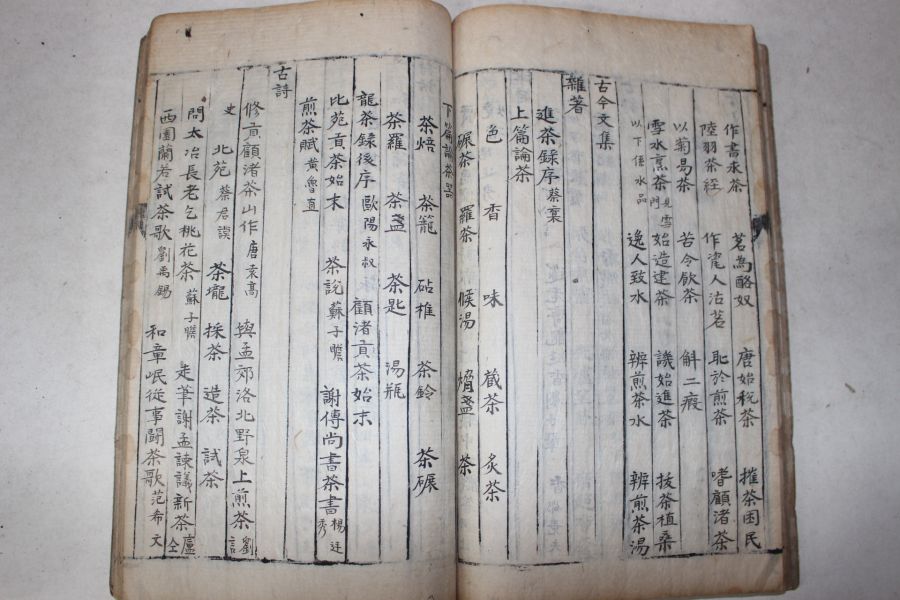 作書求茶 茗為酪奴 唐始稅茶 搉茶困民
陸羽茶經 作毣人沽茗 恥於煎茶 嗜顧渚茶
以菊易茶 苦令飲茶 斛二瘕
雪水烹茶 見雪門 始造建茶 譏始進茶 拔茶植桑
以下係水品 逸人致水 辨煎茶水 辨煎茶湯
古今文集
雜著
進茶錄序 蔡襄
上篇論茶
色 香 味 蔵茶 炙茶
碾茶 羅茶 候湯 熁盞 茶
下篇論茶器
茶焙 茶籠 砧椎 茶鈴 茶碾
茶羅 茶盞 茶匙 湯瓶
龍茶錄後序 歐陽永叔 顧渚貢茶始末
北苑貢茶始末 茶説 蘇子瞻 謝傅尚書茶書 楊廷秀
煎茶賦 黃魯直
古詩
修貢顧渚茶山作 唐袁高 與孟郊洛北野泉上煎茶 劉言
史 北苑 蔡君謨 茶壠 採茶 造茶 試茶
問大冶長老乞桃花茶 蘇子瞻 走筆謝孟諫議新茶 盧仝
西園蘭若試茶歌 劉禹錫 和章岷從事闘茶歌 范希文